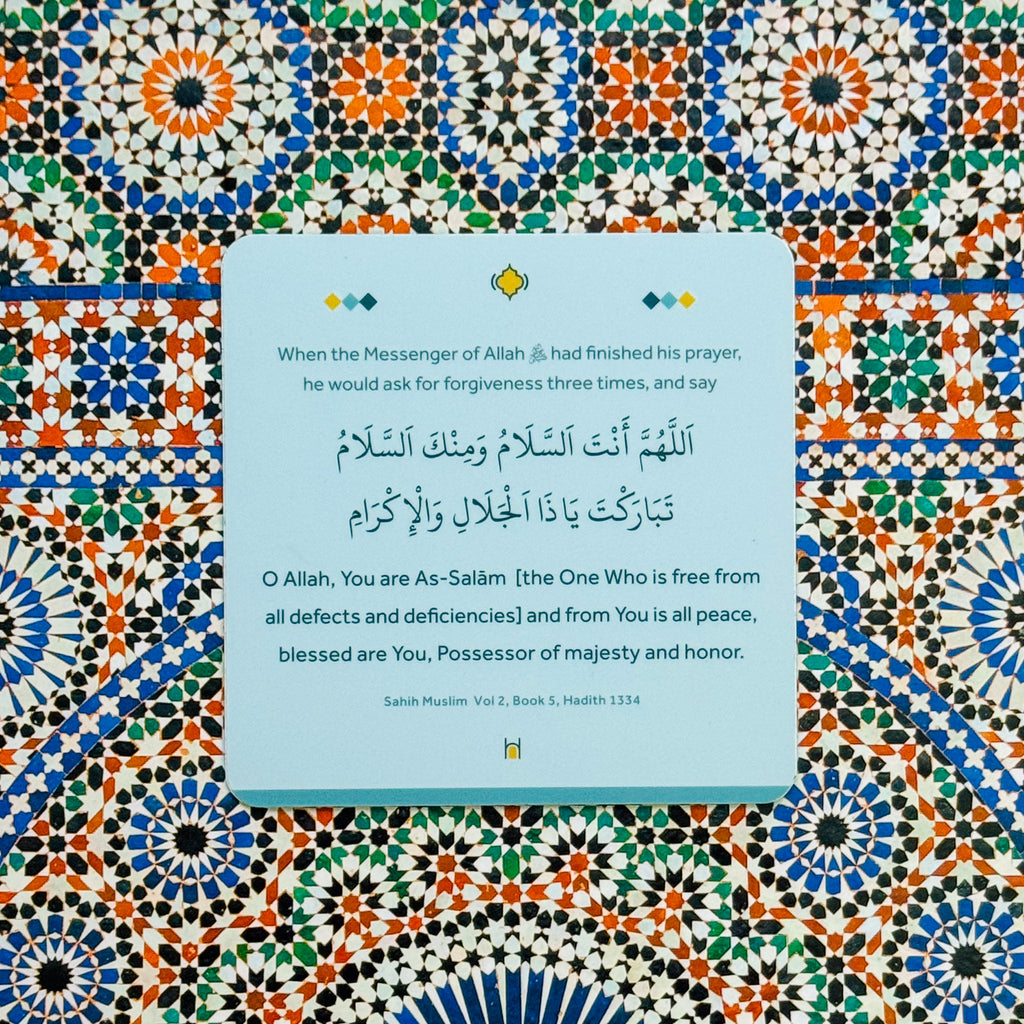 When the Messenger of Allah ﷺ had finished his prayer,
he would ask for forgiveness three times, and say
اَللَّهُمَّ أَنْتَ اَلسَّلَامُ وَمِنْكَ اَلسَّلَامُ
تَبَارَكْتَ يَاذَا اَلْجَلَالِ وَالْإِكْرَامِ
O Allah, You are As-Salām [the One Who is free from
all defects and deficiencies] and from You is all peace,
blessed are You, Possessor of majesty and honor.
Sahih Muslim Vol 2, Book 5, Hadith 1334